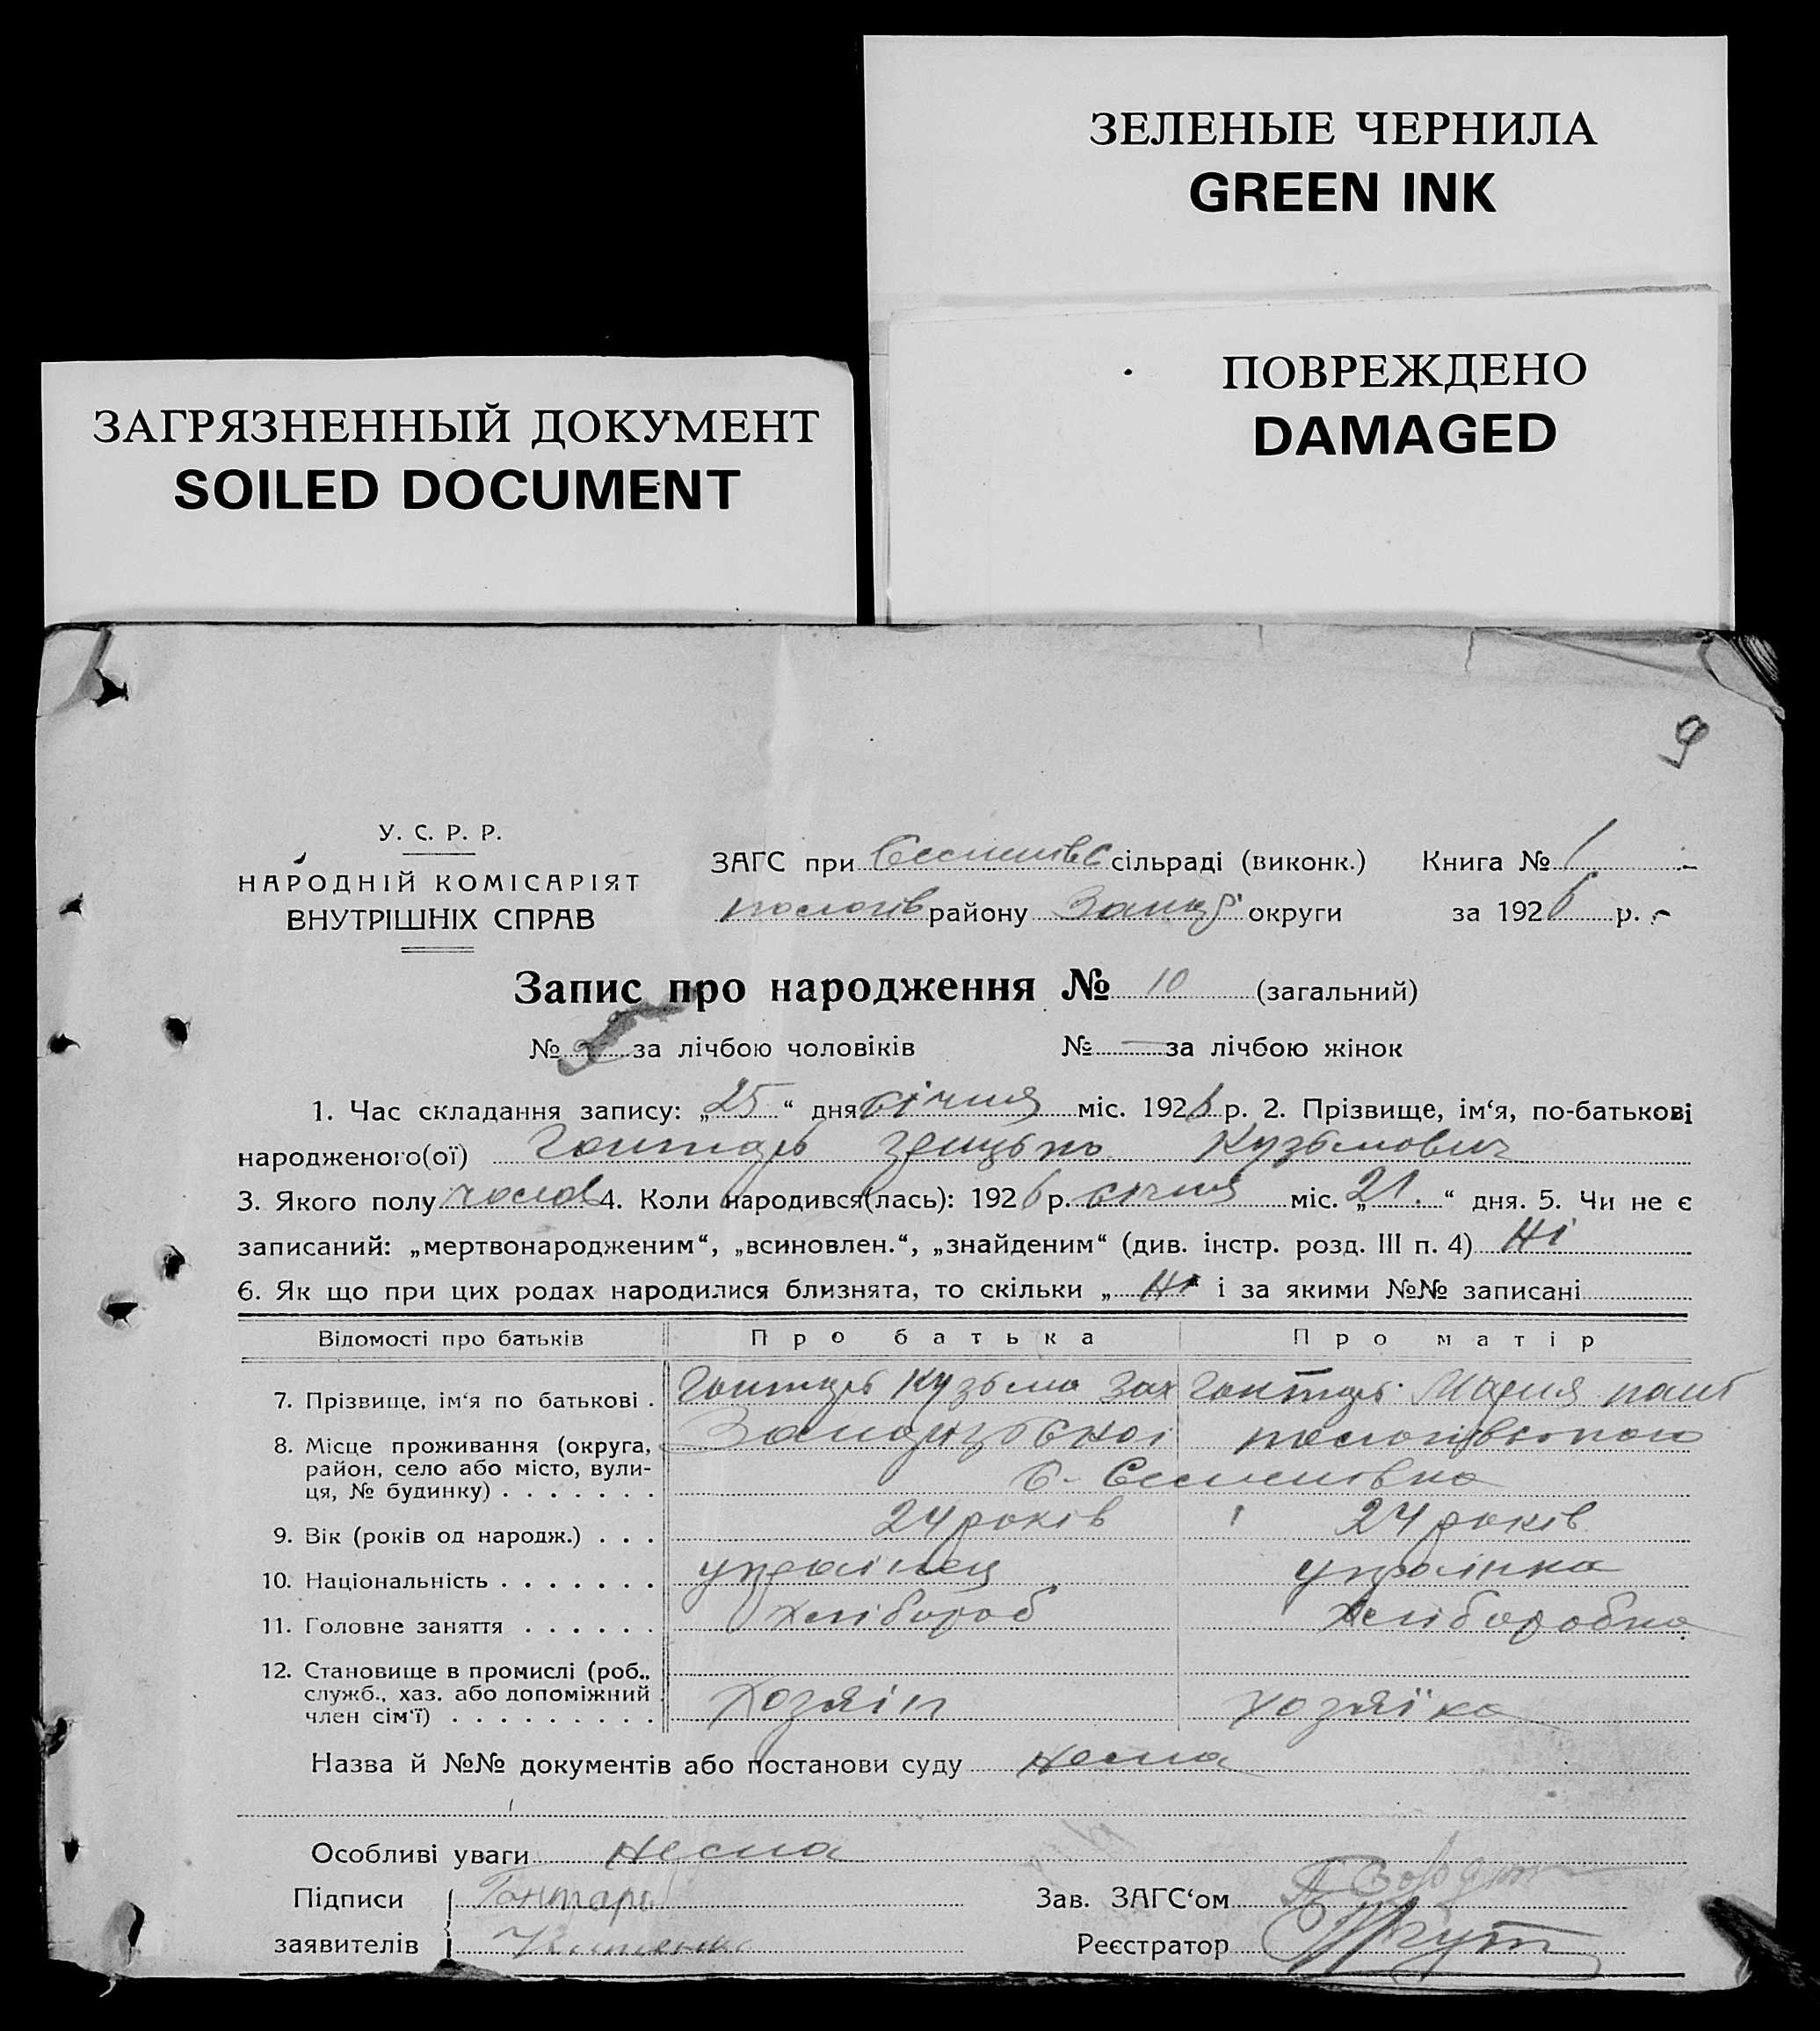 ЗЕЛЕНЫЕ ЧЕРНИЛА
GREEN INK
ПОВРЕЖДЕНО
DAMAGED
ЗАГРЯЗНЕННЫЙ ДОКУМЕНТ
SOILED DOCUMENT
9
У. С. Р. Р.
НАРОДНІЙ КОМІСАРІЯТ
ВНУТРІШНІХ СПРАВ
ЗАГС при сільраді (виконк.) Книга № 1
пологів району округи за 1926 р.
Запис про народження № 10 (загальний)
№ за лічбою чоловіків № — за лічбою жінок
1. Час складання запису: „25“ дня січня міс. 1926 р. 2. Прізвище, ім‘я, по-батькові
народженого(ої) Гонтарь Грицько Кузьмович
3. Якого полу чолов 4. Коли народився(лась): 1926 р. січня міс. „21.“ дня. 5. Чи не є
записаний: „мертвонародженим“, „всиновлен.“, „знайденим“ (див. інстр. розд. III п. 4) Ні
6. Як що при цих родах народилися близнята, то скільки „Ні“ і за якими №№ записані
Відомості про батьків Про батька Про матір
7. Прізвище, ім‘я по батькові . Гонтарь Кузьма Зах Гонтарь Мария
8. Місце проживання (округа,
район, село або місто, вули-
ця, № будинку) . . . . . . . с. Семенівка
9. Вік (років од народж.) . . . 24 років 24 років
10. Національність . . . . . . . українец українка
11. Головне заняття . . . . . . хлібороб хліборобка
12. Становище в промислі (роб.,
служб., хаз. або допоміжний
член сім‘ї) . . . . . . . . . Хозяін хозяїка
Назва й №№ документів або постанови суду Нема
Особливі уваги Нема
Підписи Гонтарь Зав. ЗАГС‘ом
заявителів Реєстратор